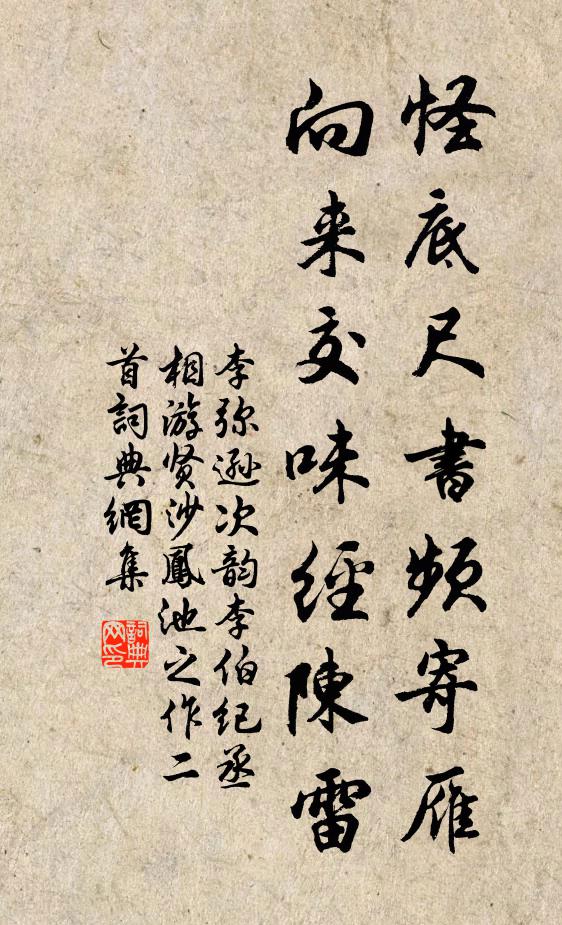 怪底尺書頻寄雁
向来交味經陳雷
李弥遜次韵李伯紀丞
相游贤沙鳳池之作二
首詞典網集
詞典
网印